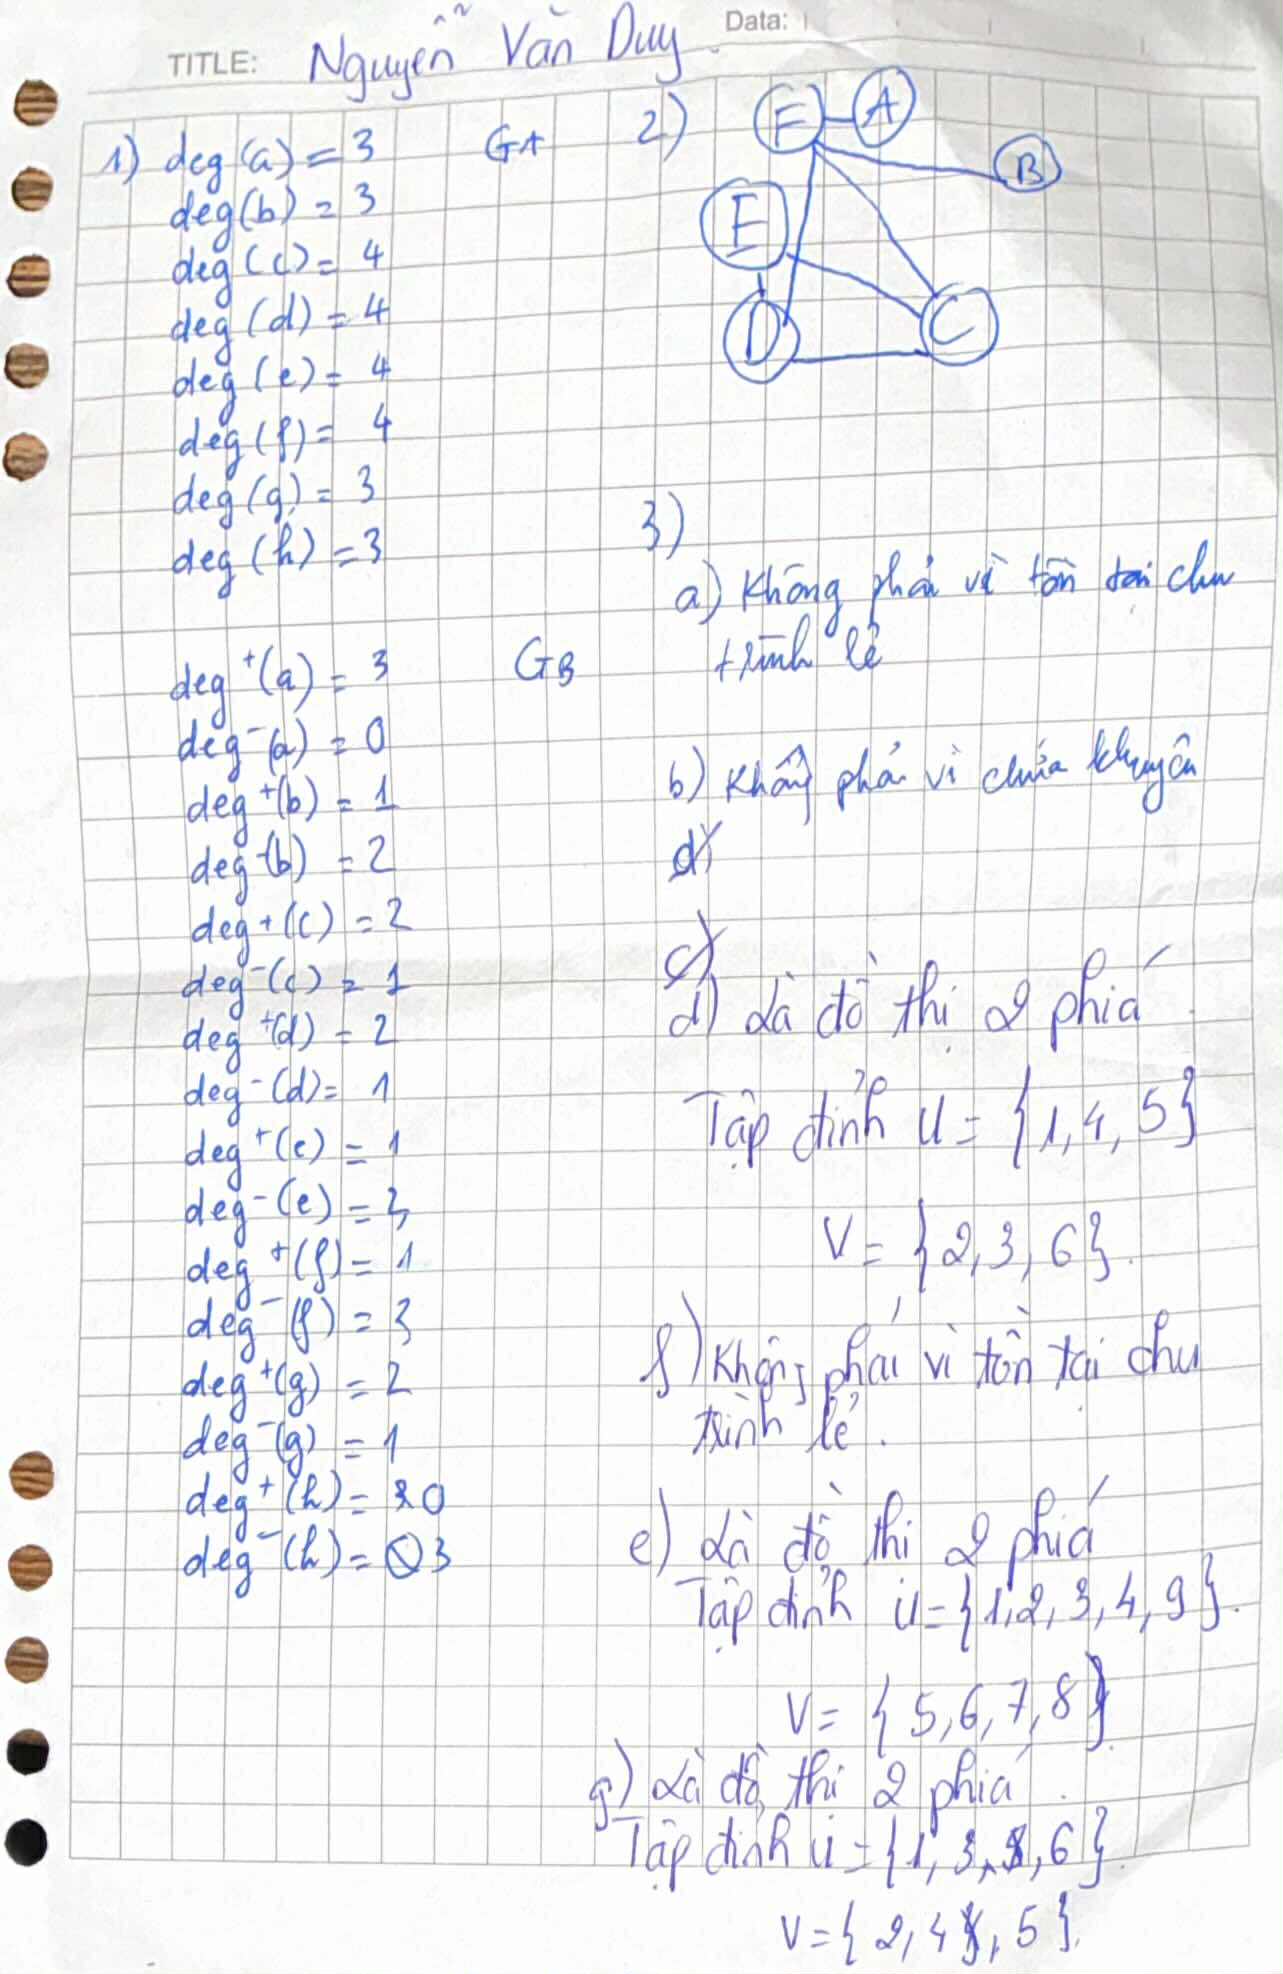 TITLE: Nguyễn Văn Duy
Data:
1) deg(a) = 3 GA
deg(b) = 3
deg(c) = 4
deg(d) = 4
deg(e) = 4
deg(f) = 4
deg(g) = 3
deg(h) = 3
deg⁺(a) = 3 GB
deg⁻(a) = 0
deg⁺(b) = 1
deg⁻(b) = 2
deg⁺(c) = 2
deg⁻(c) = 1
deg⁺(d) = 2
deg⁻(d) = 1
deg⁺(e) = 1
deg⁻(e) = 3
deg⁺(f) = 1
deg⁻(f) = 3
deg⁺(g) = 2
deg⁻(g) = 1
deg⁺(h) = 0
deg⁻(h) = 3
2)
F A
B
E
D C
3)
a) Không phải vì tồn tại chu
trình lẻ
b) Không phải vì chứa khuyên
d)
c)
d) Là đồ thị 2 phía
Tập đỉnh U = {1, 4, 5}
V = {2, 3, 6}.
f) Không phải vì tồn tại chu
trình lẻ.
e) Là đồ thị 2 phía
Tập đỉnh U = {1, 2, 3, 4, 9}.
V = {5, 6, 7, 8}
g) Là đồ thị 2 phía.
Tập đỉnh U = {1, 3, 6}.
V = {2, 4, 5}.